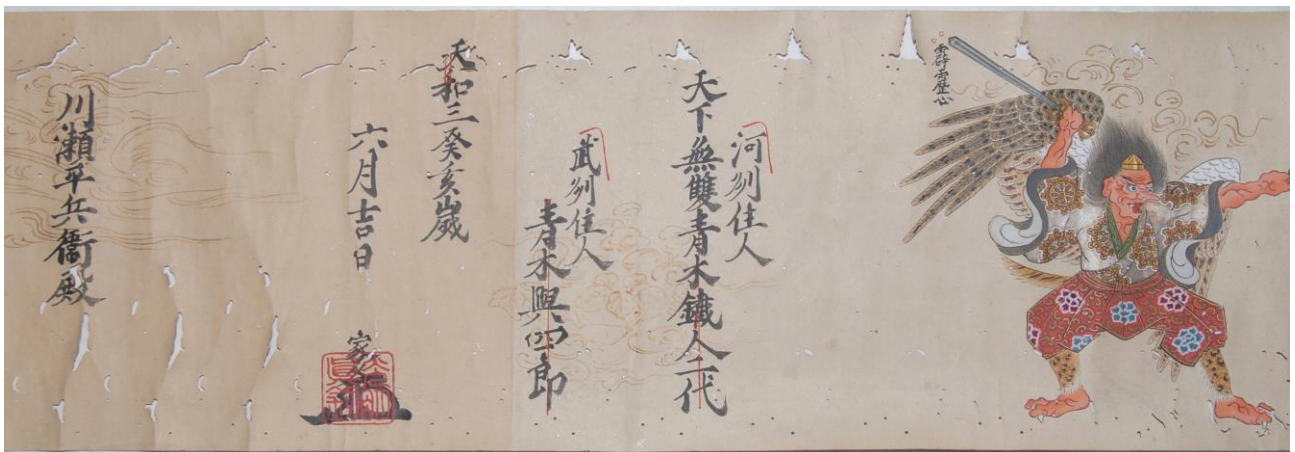 河刕住人
天下無雙青木鐵人二代
武刕住人
青木興四郎
天和三癸亥歳
六月吉日
家
川瀬平兵衞殿